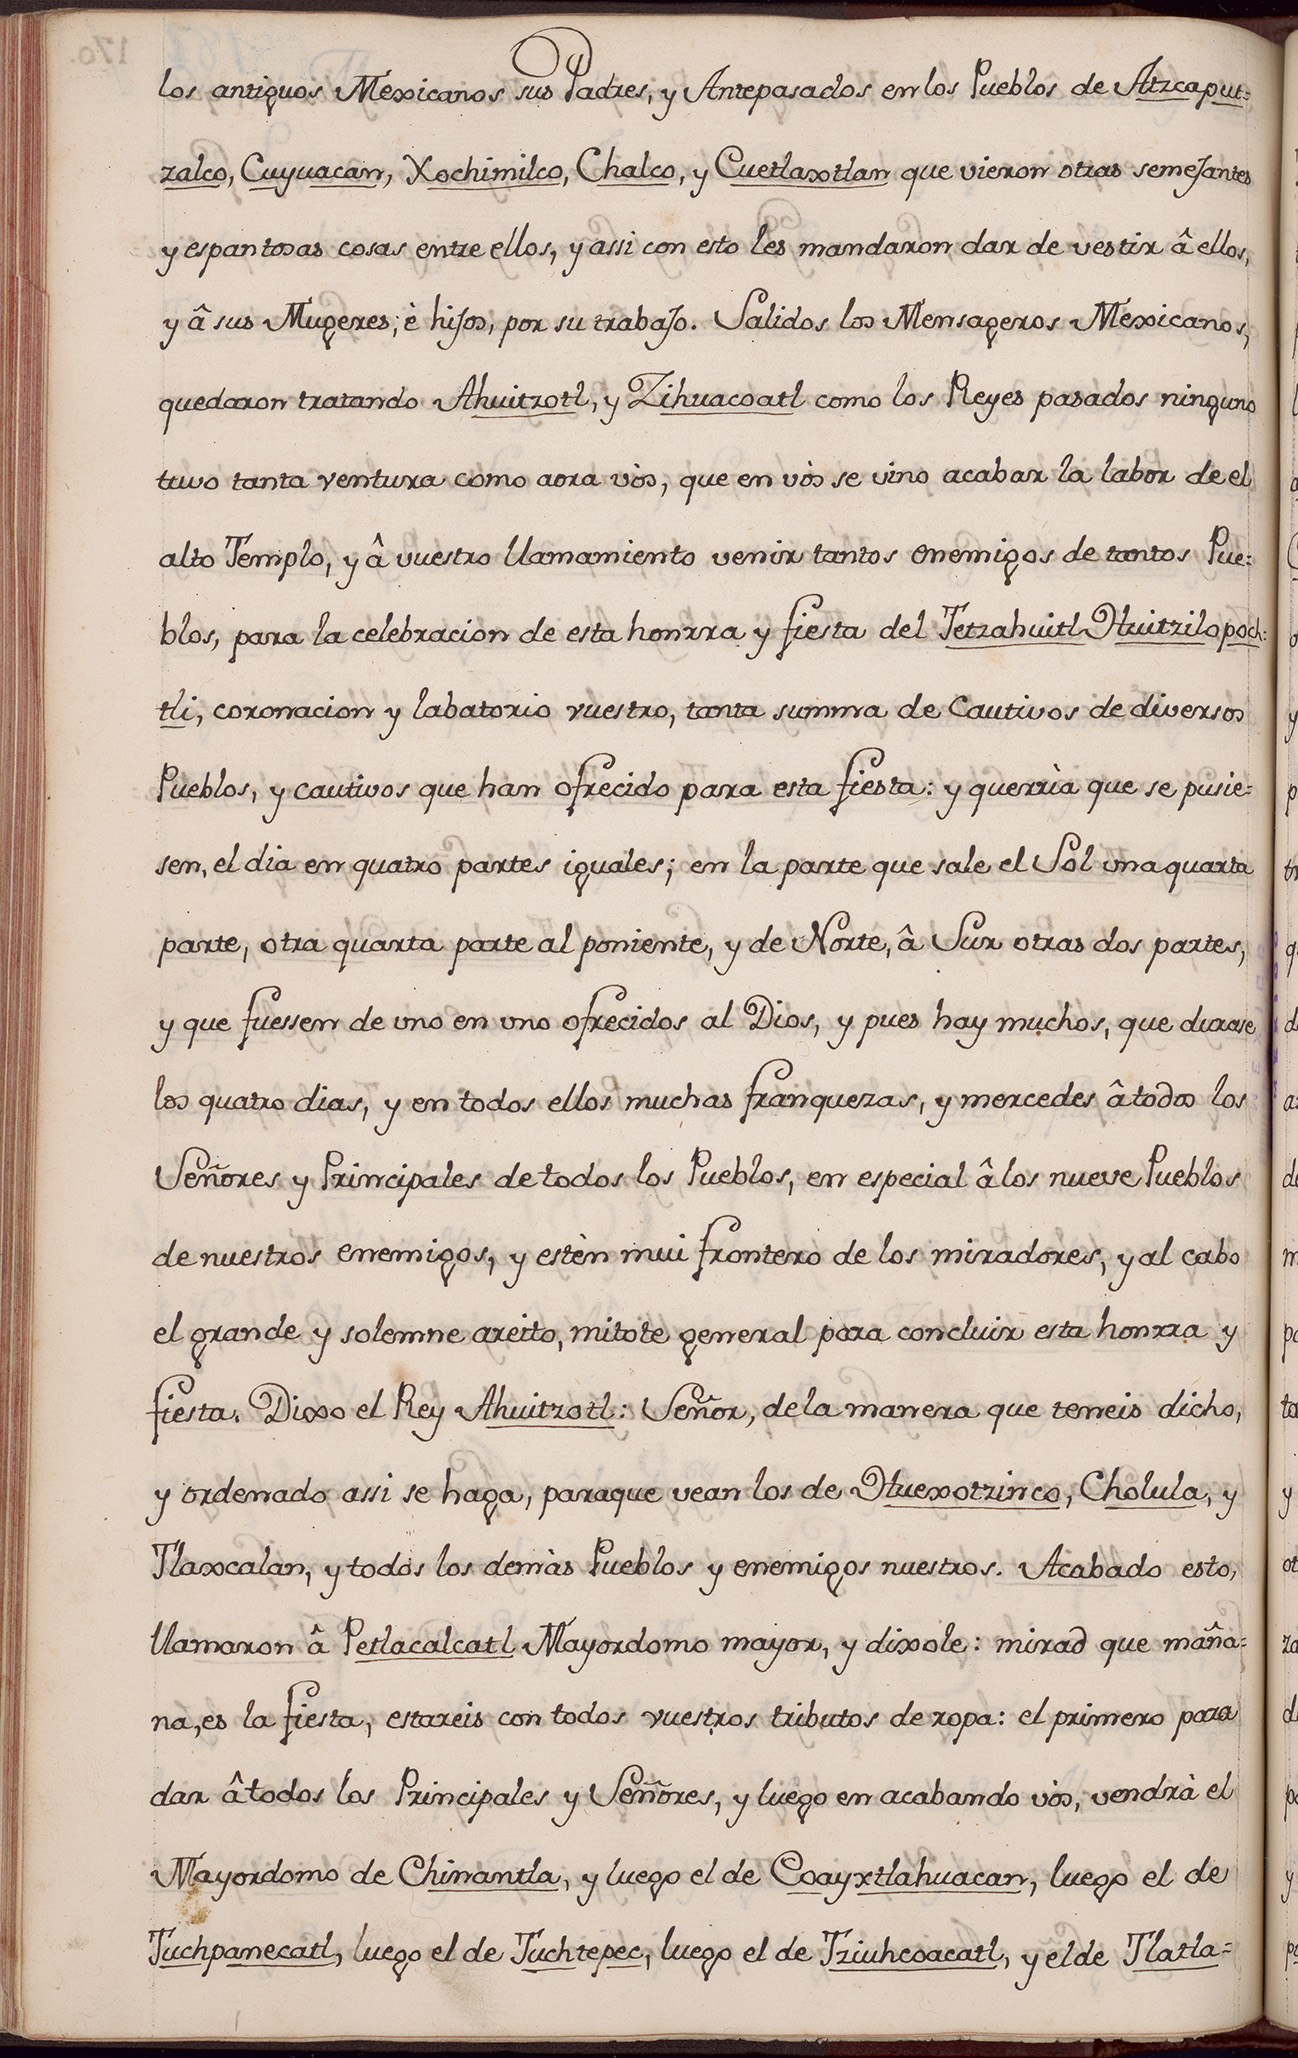 los antiguos Mexicanos sus Padres, y Antepasados en los Pueblos de Atzcaput=
zalco, Cuyuacan, Xochimilco, Chalco, y Cuetlaxtlan que vieron otras semejantes
y espantosas cosas entre ellos, y assi con esto les mandaron dar de vestir â ellos,
y â sus Mugeres, è hijos, por su trabajo. Salidos los Mensageros Mexicanos,
quedaron tratando Ahuitzotl, y Zihuacoatl como los Reyes pasados ninguno
tuvo tanta ventura como aora vòs, que en vòs se vino acabar la labor de el
alto Templo, y â vuestro llamamiento venir tantos enemigos de tantos Pue=
blos, para la celebracion de esta honrra y fiesta del Tetzahuitl Huitzilopoch=
tli, coronacion y labatorio vuestro, tanta summa de Cautivos de diversos
Pueblos, y cautivos que han ofrecido para esta fiesta: y querrìa que se pusie=
sen, el dia en quatro partes iguales; en la parte que sale el Sol una quarta
parte, otra quarta parte al poniente, y de Norte, â Sur otras dos partes,
y que fuessen de uno en uno ofrecidos al Dios, y pues hay muchos, que durase
los quatro dias, y en todos ellos muchas franquezas, y mercedes â todos los
Señores y Principales de todos los Pueblos, en especial â los nueve Pueblos
de nuestros enemigos, y estèn mui frontero de los miradores, y al cabo
el grande y solemne areito, mitote general para concluir esta honrra y
fiesta. Dixo el Rey Ahuitzotl: Señor, de la manera que teneis dicho,
y ordenado assi se haga, paraque vean los de Huexotzinco, Cholula, y
Tlaxcalan, y todos los demàs Pueblos y enemigos nuestros. Acabado esto,
llamaron â Petlacalcatl Mayordomo mayor, y dixole: mirad que maña=
na, es la fiesta, estareis con todos vuestros tributos de ropa: el primero para
dar â todos los Principales y Señores, y luego en acabando vòs, vendrà el
Mayordomo de Chinantla, y luego el de Coayxtlahuacan, luego el de
Tuchpanecatl, luego el de Tuchtepec, luego el de Tziuhcoacatl, y el de Tlatla=